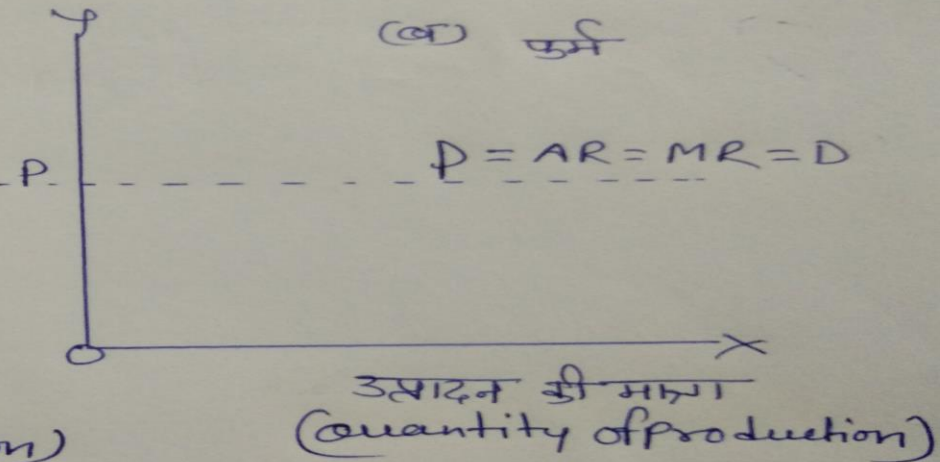 Y
(ब) फर्म
P = AR = MR = D
P
O
X
उत्पादन की मात्रा
(Quantity of production)
n)